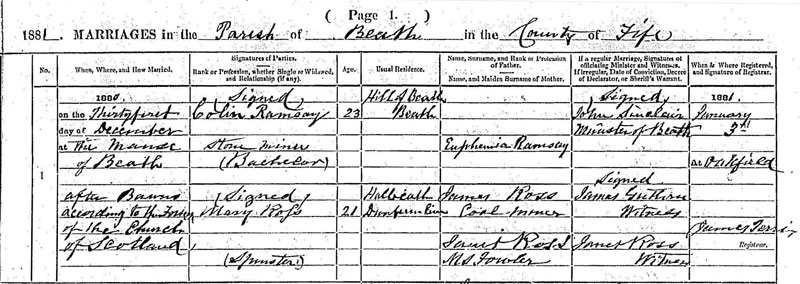 ( Page 1. )
1881. MARRIAGES in the Parish of Beath in the County of Fife
No.
When, Where, and How Married.
Signatures of Parties.
Rank or Profession, whether Single or Widowed, and Relationship (if any).
Age.
Usual Residence.
Name, Surname, and Rank or Profession of Father.
Name, and Maiden Surname of Mother.
If a regular Marriage, Signatures of officiating Minister and Witnesses. If irregular, Date of Conviction, Decree of Declarator, or Sheriff's Warrant.
When & Where Registered, and Signature of Registrar.
1
1880.
on the Thirtyfirst
day of December
at The Manse
of Beath
after Banns
according to the Forms
of the Church
of Scotland
(Signed)
Colin Ramsay
Stone miner
(Bachelor)
(Signed)
Mary Ross
(Spinster)
23
21
Hill of Beath
Beath
Halbeath
Dunfermline
Euphemia Ramsay
James Ross
Coal miner
Janet Ross
M.S. Fowler
(Signed)
John Sinclair
Minister of Beath
(Signed)
James Guthrie
Witness
Janet Ross
Witness
1881.
January
3rd
at Oakfield
James
Registrar.